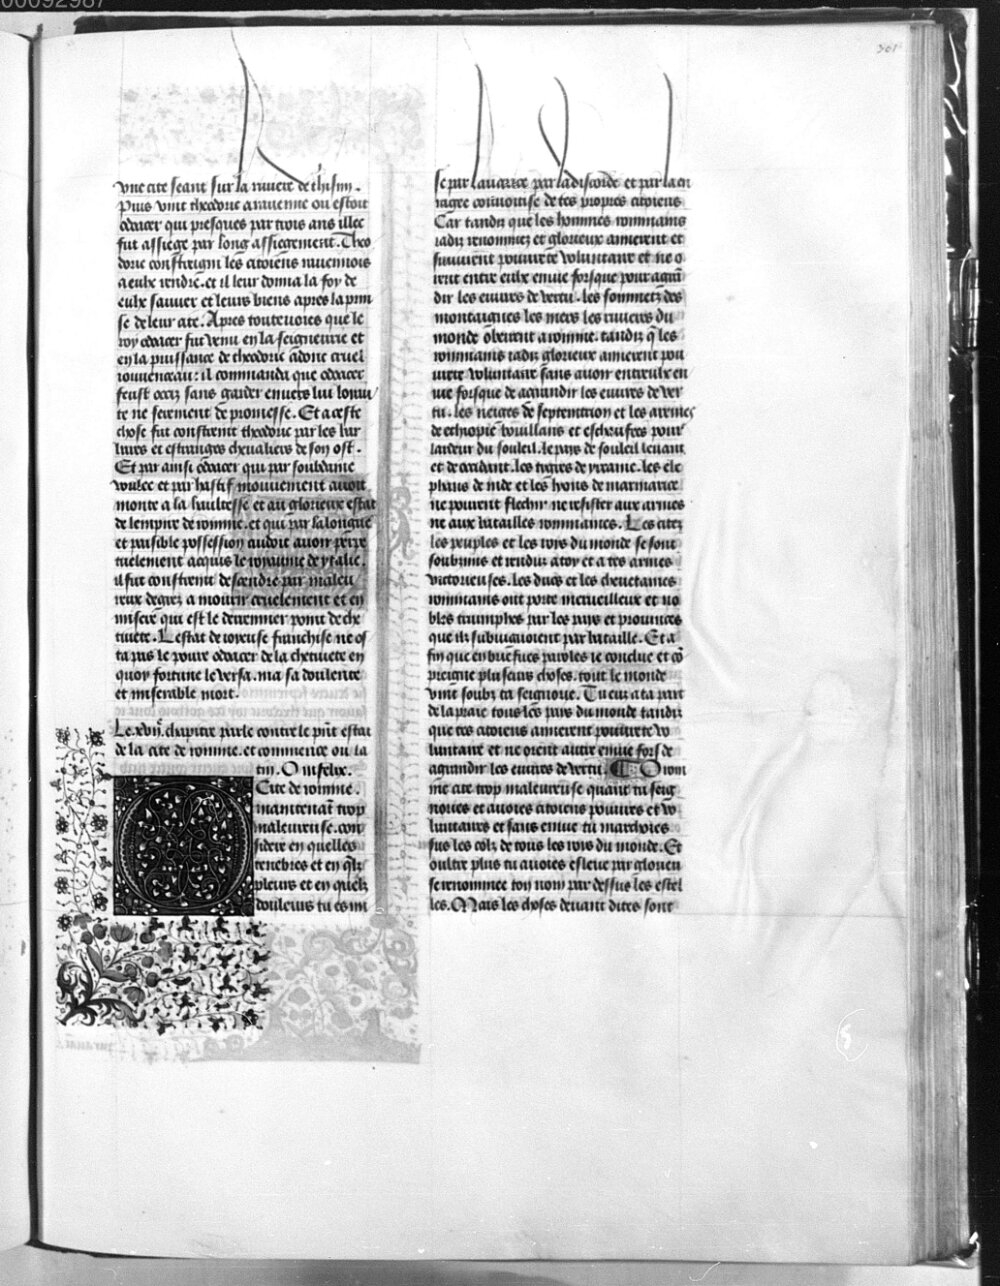 00092987
301
vne cite seant sur la riuiere de thisin.
Puis vint theodoric a rauenne ou estoit
odoacer qui presques par trois ans illec
fut assiege par long assiegement. Theo
doric constreigni les citoiens rauennois
a eulx rendre. et il leur donna la foy de
eulx sauuer et leurs biens apres la prin
se de leur cite. Apres toutesuoies que le
roy odoacer fut venu en la seigneurie et
en la puissance de theodoric adonc cruel
iouuenceau: il commanda que odoacer
feust occiz sans garder enuers lui loiau
te ne serement de promesse. Et a ceste
chose fut constreint theodoric par les bar
bares et estranges cheualiers de son ost.
Et par ainsi odoacer qui par soubdaine
voulee et par hastif mouuement auoit
monte a la haultesse et au glorieux estat
de lempire de romme. et qui par la longue
et paisible possession cudoit auoir perpe
tuelement acquis le royaume de ytalie.
il fut constreint descendre par maleu
reux degrez a mourir cruelement et en
misere qui est le derrenier point de che
tiuete. Lestat de ioieuse franchise ne os
ta pas le poure odoacer de la chetiuete en
quoy fortune le versa. ma sa doulente
et miserable mort.
Le xvije. chapitre parle contre le pnt estat
de la cite de romme. et commence ou la
tin. O infelix.
Cite de romme.
maintenat trop
maleureuse. con
sidere en quelles
tenebres et en qlz
pleurs et en quelz
douleurs tu es mi
se par lauarice par la discorde et par la en
ragee conuoitise de tes propres citoiens
Car tandis que les hommes rommains
iadiz renommez et glorieux amerent et
suiuirent pourete voluntaire et ne o
rent entre eulx enuie forsque pour agra
dir les euures de vertu. les sommetz des
montaignes les mers les riuieres du
monde obeirent a romme. tandiz q les
rommains iadiz glorieux amerent pou
urete voluntaire sans auoir entreulx en
uie forsque de agrandir les euures de ver
tu. les neiges de septemtrion et les areines
de ethiopie boullans et eschaufees pour
lardeur du souleil. le pays de souleil leuant
et de occidant. les tigres de yrcanie. les ele
phans de inde et les lyons de marmarice
ne pourent flechir ne resister aux armes
ne aux batailles rommaines. Les citez
les peuples et les rois du monde se sont
soubzmis et rendus a toy et a tes armes
victorieuses. les ducs et les cheuetaines
rommains ont porte merueilleux et no
bles triumphes par les pays et prouinces
que ilz subiuguoient par bataille. Et a
fin que en briefues paroles ie conclue et co
preigne plusieurs choses. tout le monde
vint soubz ta seigneurie. Tu euz a ta part
de la praie tous les pays du monde tandiz
que tes citoiens amerent pourete vo
luntaire et ne orent autre enuie fors de
agrandir les euures de vertu. O rom
me cite trop maleureuse quant tu seig
nories et auoies citoiens poures et vo
luntaires et sans enuie tu marchoies
sus les colz de tous les rois du monde. Et
oultre plus tu auoies esleue par glorieu
se renommee ton nom par dessus les estel
les. Mais les choses deuant dites sont